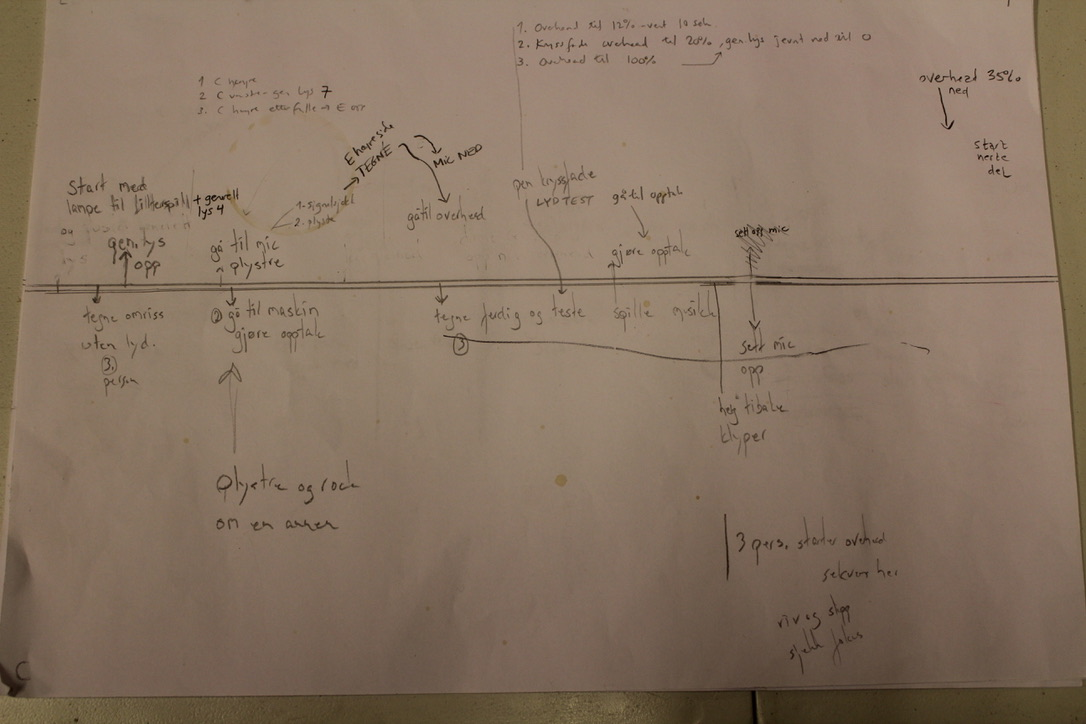 1. Overhead til 12% ved 10 sek.
2. Kryssfade overhead til 20%, gen lys jevnt ned til 0
3. Overhead til 100%
1 C høyre
2 C venstre gen lys 7
3. C høyre
overhead 35%
ned
start
neste
del
E høyre side
TEGNE
MIC NED
Start med
lampe til
+ generelt
lys 4
og
gen. lys
opp
1. signalsjekk
2. plystre
gå til mic
plystre
gå til overhead
pen kryssfade
LYDTEST
gå til opptak
gjøre opptak
sett opp mic
tegne omriss
uten lyd.
3.
person
2 gå til maskin
gjøre opptak
tegne ferdig og teste
3
spille musikk
sett mic
opp
tilbake
klyper
Plystre og rock
om en annen
3 pers. starter overhead
sekvens her
riv og slipp
sjekk fokus
C